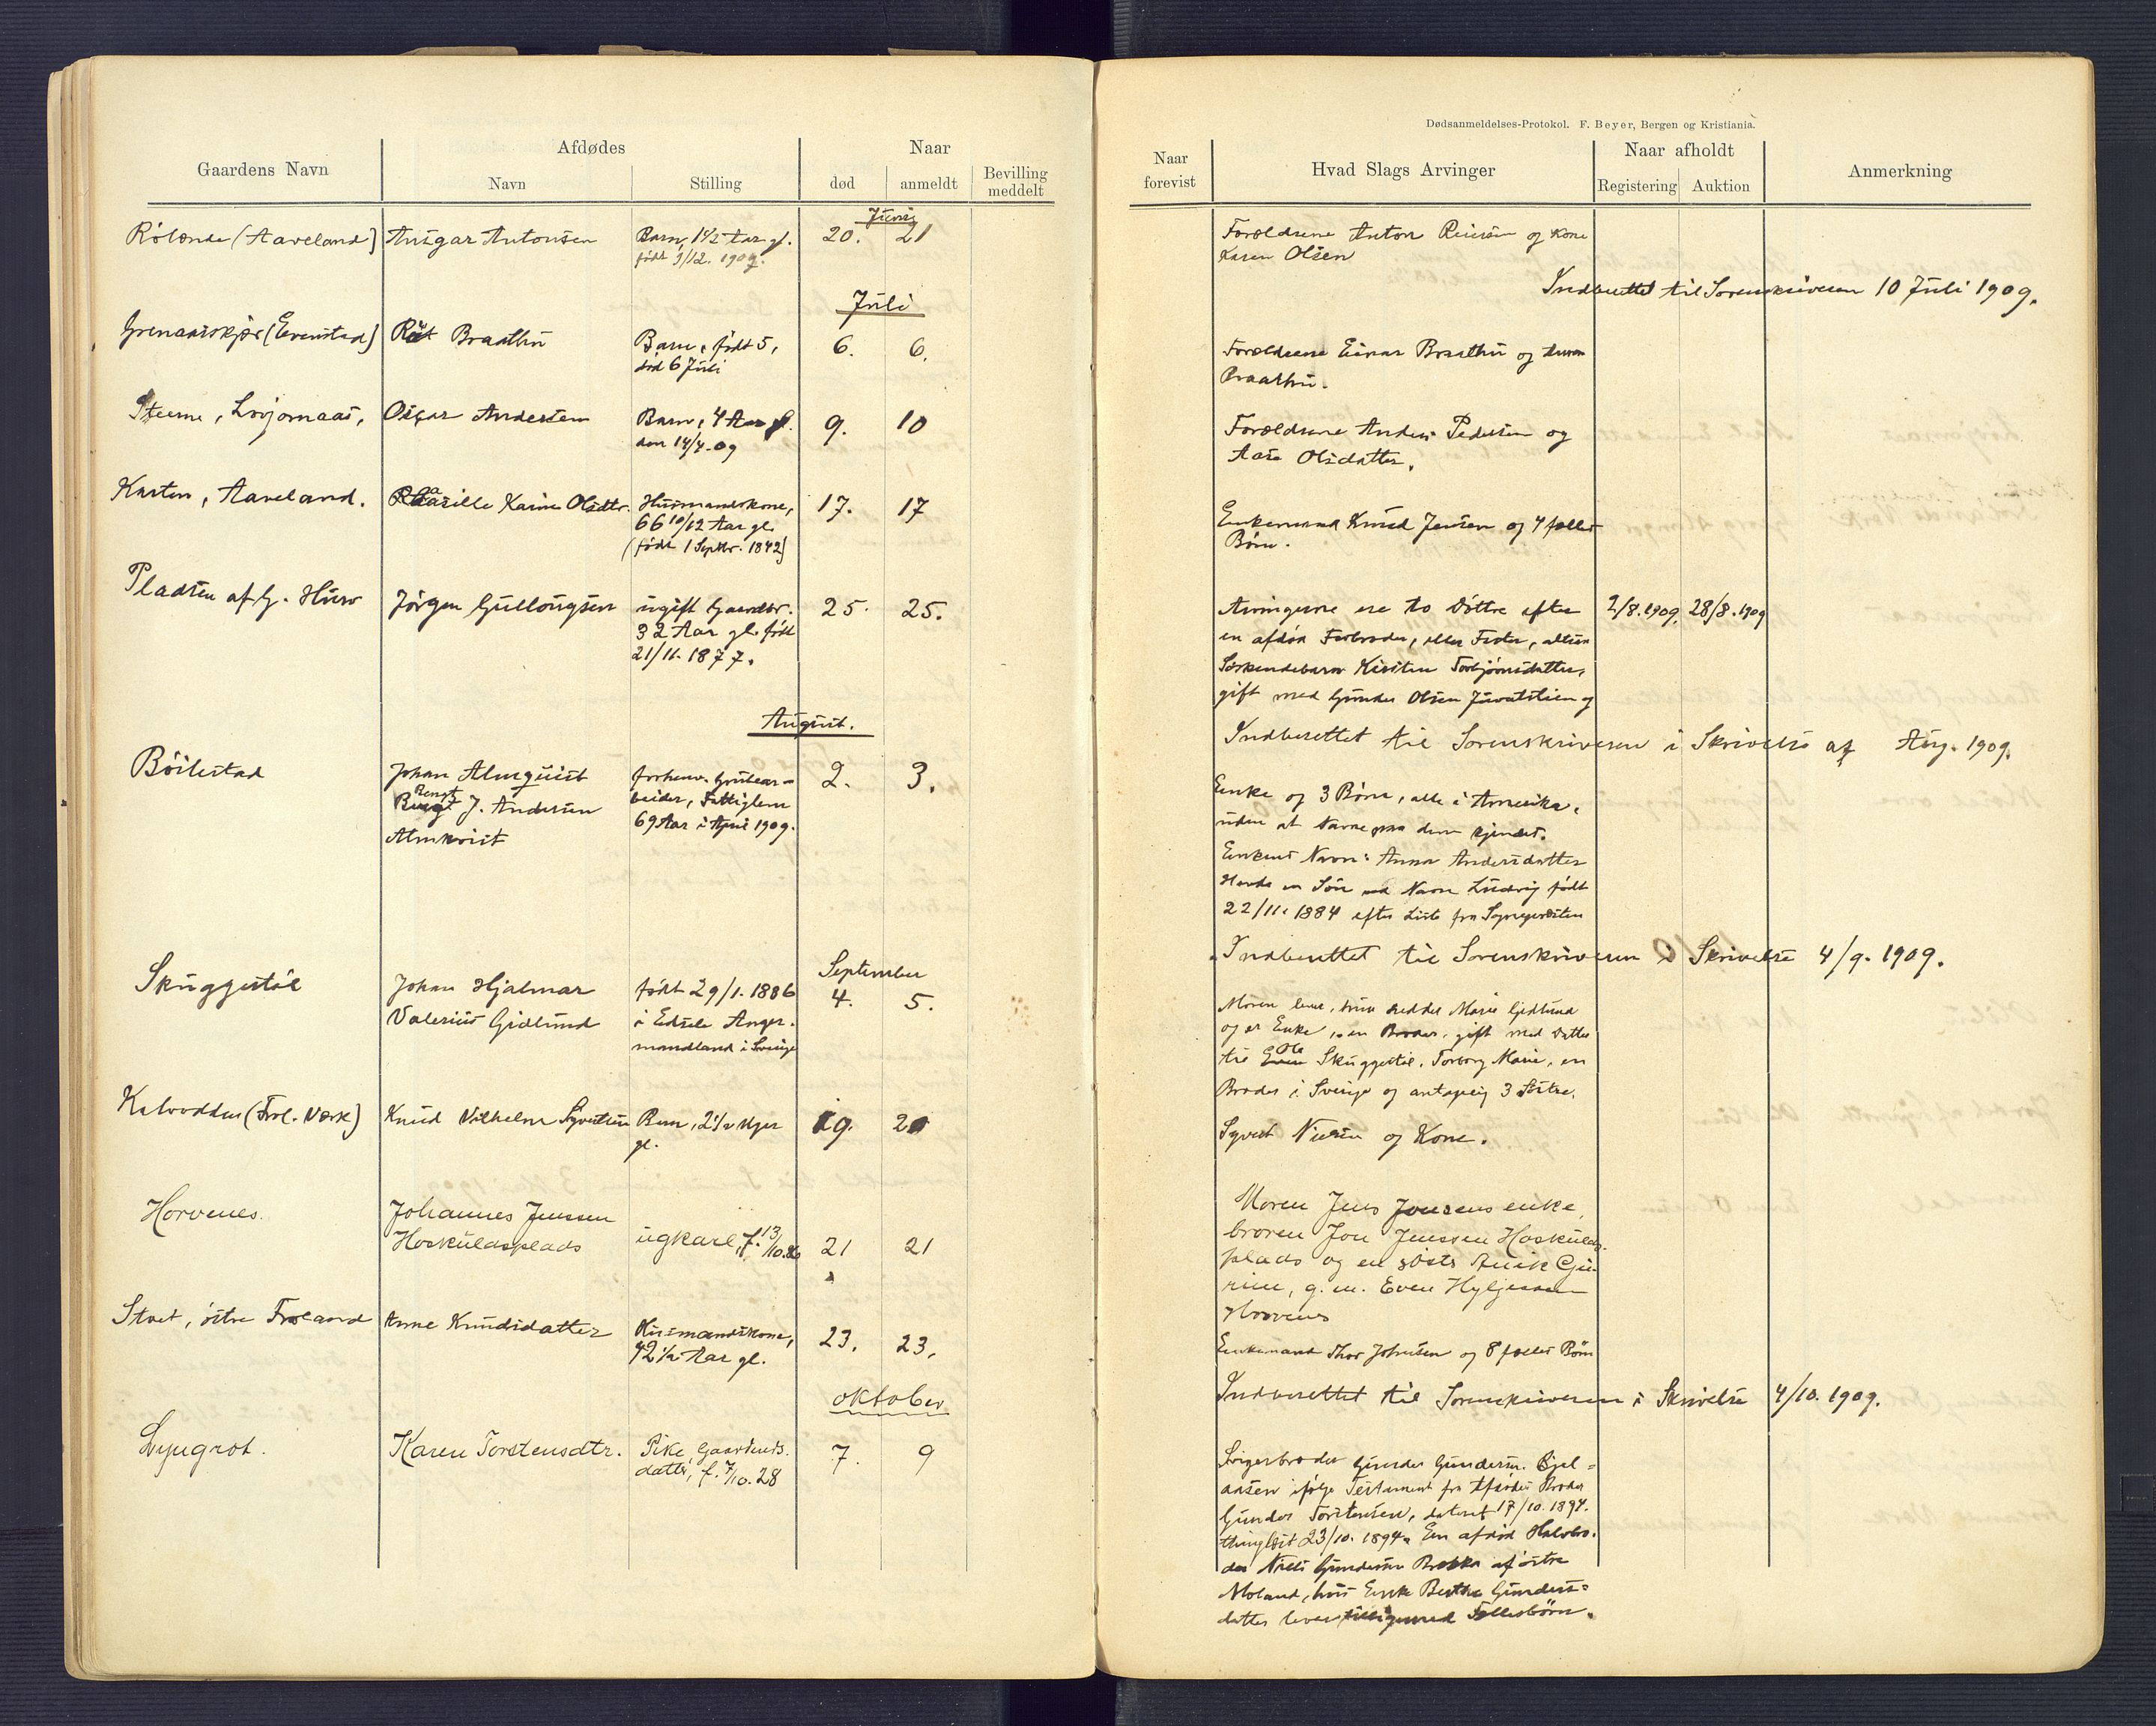 Dødsanmeldelses-Protokol. F. Beyer, Bergen og Kristiania.
Gaardens Navn
Afdødes
Navn
Stilling
Naar
død
anmeldt
Bevilling
meddelt
Naar
forevist
Hvad Slags Arvinger
Naar afholdt
Registering
Auktion
Anmerkning
Juni
(Aaveland) Ansgar Antonsen Barn, 1 1/2 Aar gl. 20. 21
født 9/12. 1907.
Forældrene Anton Reiersen og Kone
Karen Olsen
Indberettet til Sorenskriveren 10 Juli 1909.
Juli
(Evenstad) Braathen Barn, født 5, 6. 6.
død 6 Juli
Forældrene Einar Braathen og
Braathen.
Løvjomaas, Oscar Andersen Barn, 4 Aar gl. 9. 10
den 14/4.09
Forældrene Anders Pedersen og
Aase Olsdatter.
Kasten, Aaveland. Karine Olsdtr. Husmandskone, 17. 17
66 10/12 Aar gl.
(født 1 Septbr. 1842)
Enkemand Knud Jensen og 4 fælles
Børn.
Pladsen af G. Jørgen Gullougsen ugift Gaardbr. 25. 25.
32 Aar gl. født
21/11.1877.
Arvingerne ere to Døttre efter 2/8.1909. 28/8.1909
en afdød Farbroder, eller Faster, altsaa
Søskendebarn Kirsten Torbjørnsdatter,
gift med Gunder Olsen og
Indberettet til Sorenskriveren i Skrivelse af Aug. 1909.
August.
Bøilestad Johan Almquist forhenv. Grubear- 2. 3.
Bengt J. Andersen beider, Fattiglem
Almkvist 69 Aar i April 1909.
Enke og 3 Børn, alle i Amerika,
uden at Navne paa dem kjendes.
Enkens Navn: Anna Andersdatter
Havde en Søn ved Navn Ludvig født
22/11. 1884 efter Liste fra Sognepresten
Indberettet til Sorenskriveren i Skrivelse 4/9. 1909.
September
Skuggestøl Johan Hjalmar født 29/1. 1886 4. 5.
Valerius Gidlund i Edsele Anger-
mandland i Sverige
Moren lever, hun hedder Marie Gidlund
og er Enke, en Broder, gift med Datter
til Ole Skuggestøl, Torborg Marie, en
Broder i Sverige og antagelig 3 Søstre.
Kalvodden (Frol. Værk) Knud Vilhelm Syvertsen Barn, 2 1/2 Uger 19. 20
gl.
Syvert Nilsen og Kone.
Horvenes. Johannes Jenssen
Hoskuldsplads ugkarl, f. 13/10.86 21 21
Moren Jens Jonsens enke,
broren Jon Jenssen Hoskulds-
plads og en søster Anik Gu-
rine, g. m. Even Hyljessen
Horvenes
østre Froland Anne Knudsdatter Husmandskone, 23. 23.
42 1/2 Aar gl.
Enkemand Thor Johnsen og 8 fælles Børn
Indberettet til Sorenskriveren i Skrivelse 4/10. 1909.
oktober
Lyngrot. Karen Torstensdtr. Pike, Gaardeiers- 7. 9
datter, f. 7/10.28
Svigerbroder Gunder Gundersen
ifølge Testament fra Afdødes Broder
Gunder Torstensen, dateret 17/10. 1894.
thinglæst 23/10. 1894. En afdød Halvbro-
der Niels Gundersen af østre
Moland, hvis Enke Berthe Gunders-
datter lever tilligemed Fællesbørn.